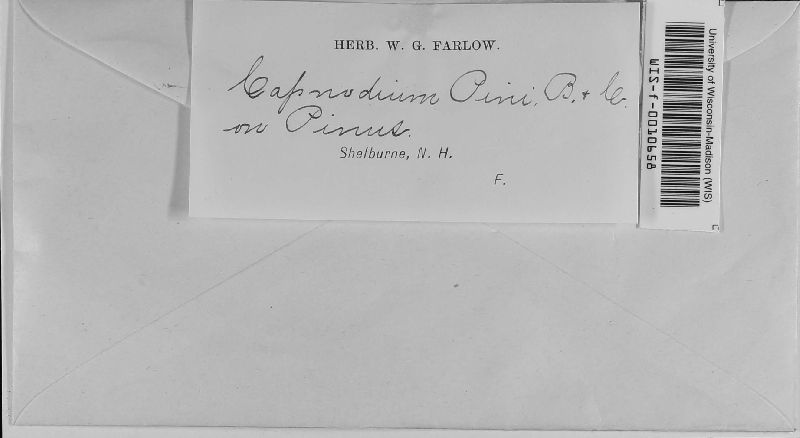 HERB. W. G. FARLOW.
Capnodium Pini. B. & C.
on Pinus.
Shelburne, N. H.
F.
University of Wisconsin-Madison (WIS)
WIS-f-0010658